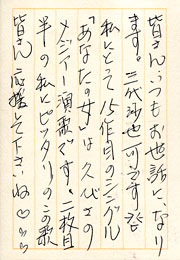 皆さんいつもお世話になり
ます。三代沙也可です。
私にとって15作目のシングル
「あなたの女」は久々の
メジャー演歌です。二枚目
半の私にピッタリのこの歌
皆さん応援して下さいね♡♡♡